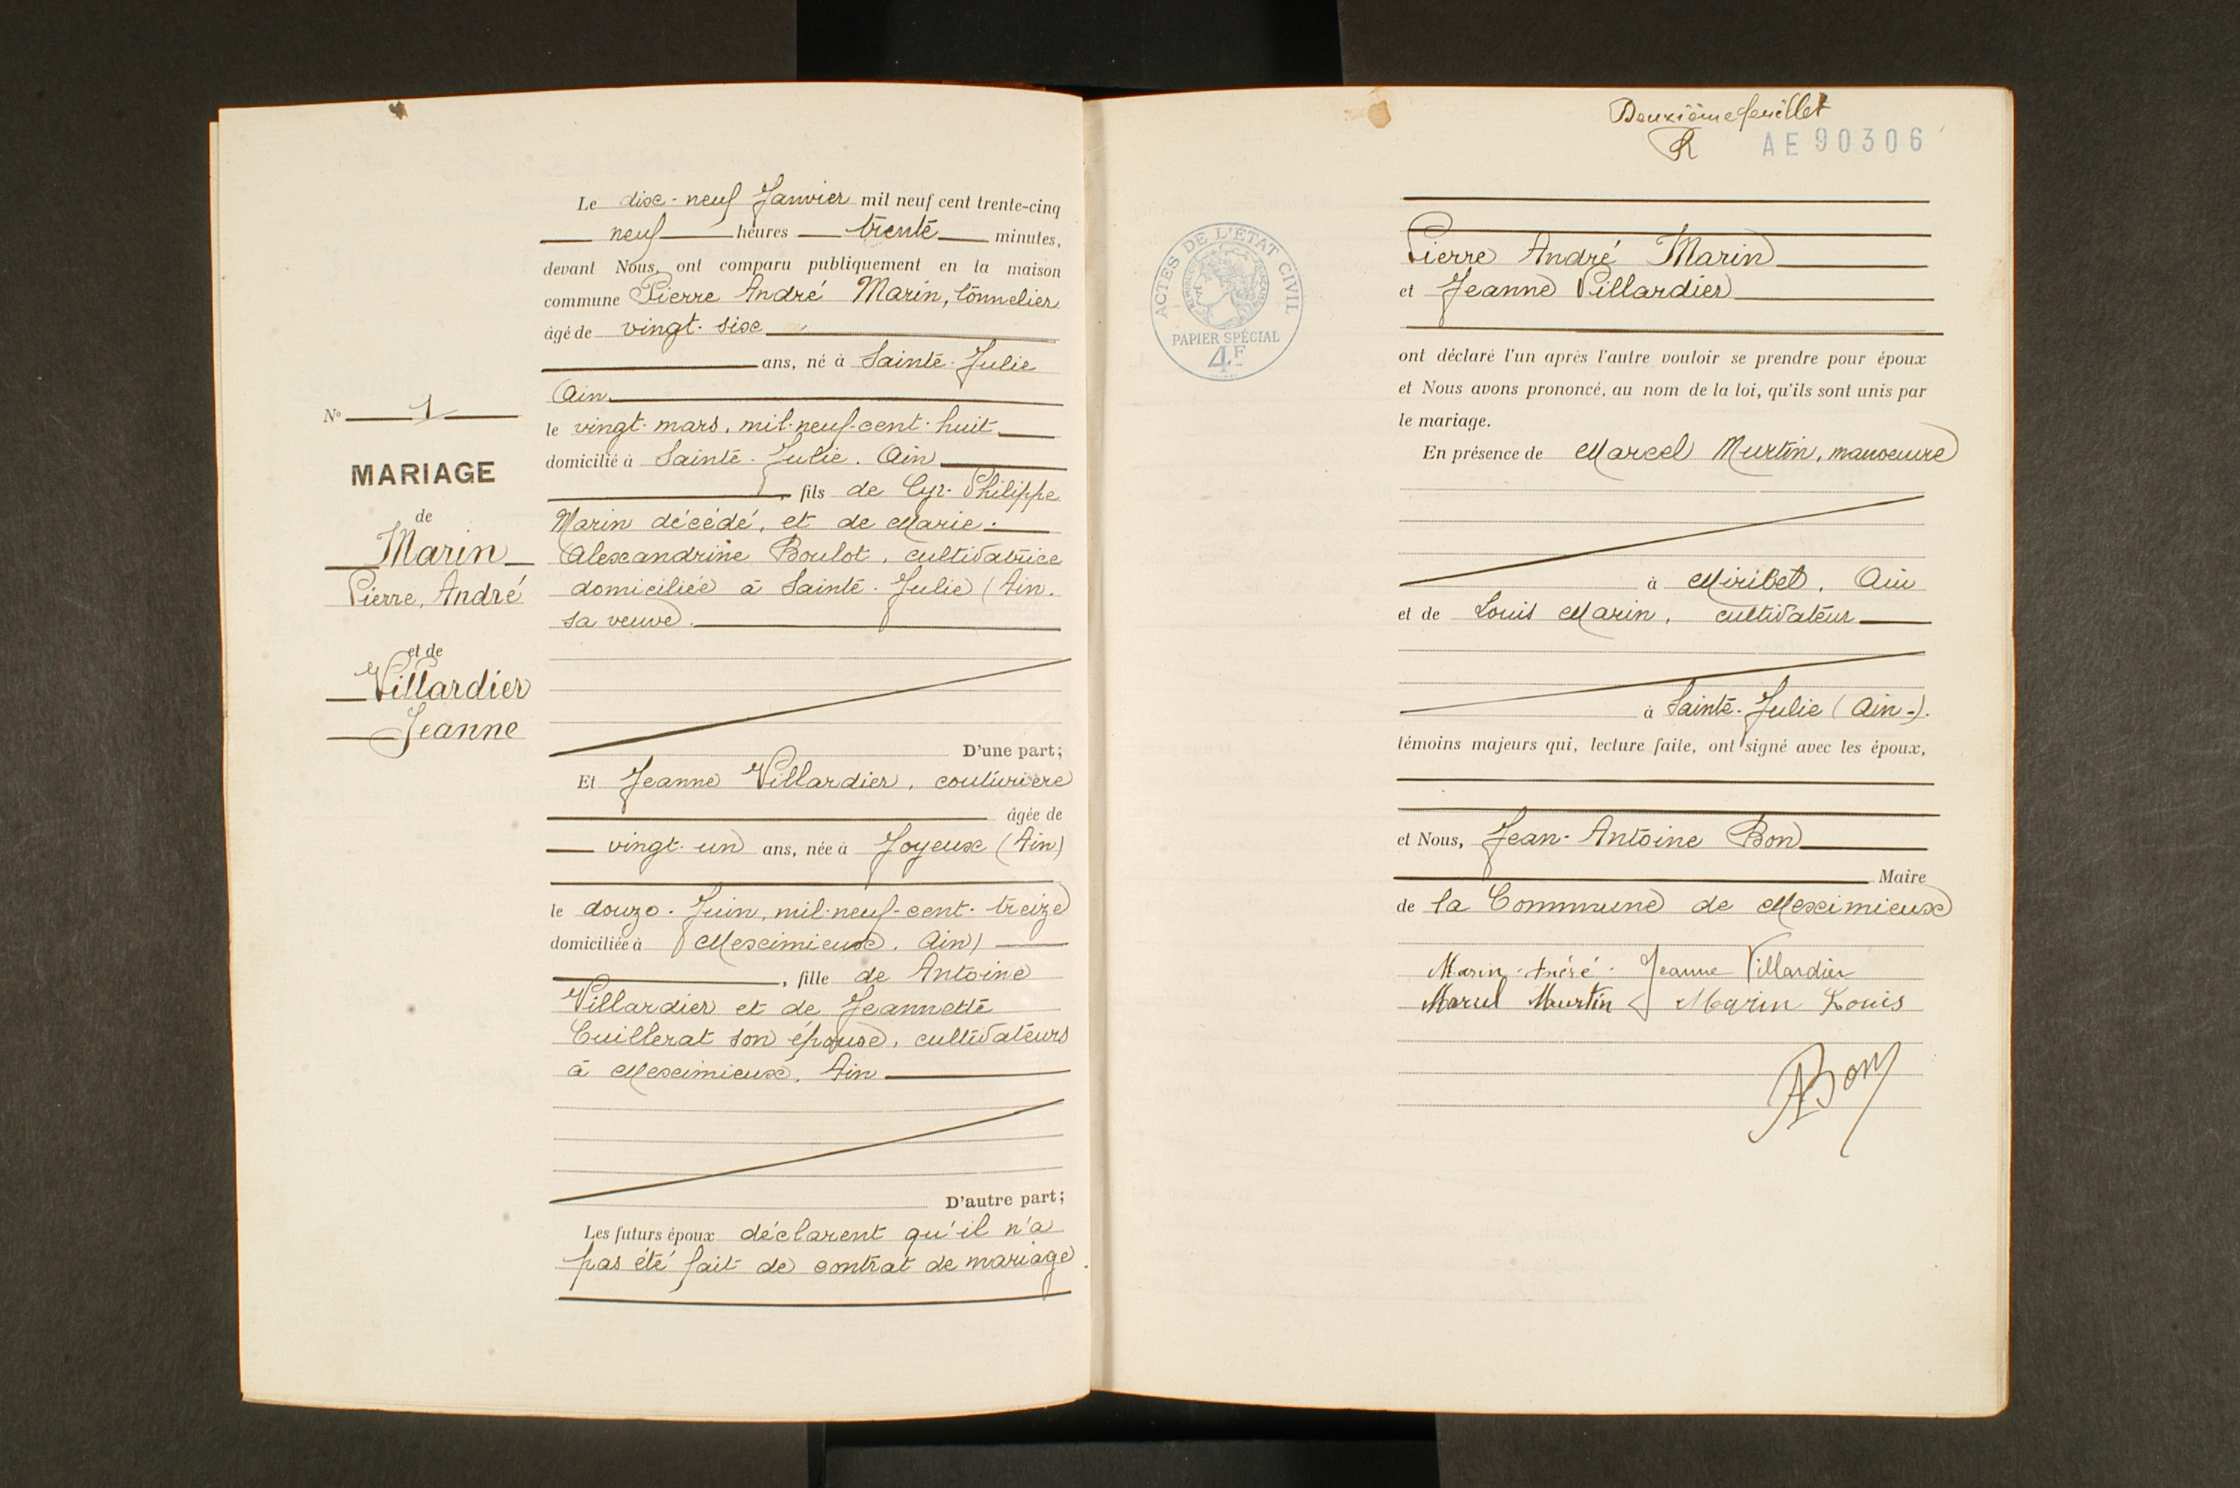 Le dix-neuf Janvier mil neuf cent trente-cinq
neuf heures trente minutes,
devant Nous, ont comparu publiquement en la maison
commune Pierre André Marin, tonnelier
âgé de vingt-six
ans, né à Sainte-Julie
(Ain
le vingt-mars, mil-neuf-cent-huit
domicilié à Sainte-Julie. Ain
, fils de Cyr-Philippe
Marin décédé, et de Marie-
Alexandrine Boulot, cultivatrice
domiciliée à Sainte-Julie (Ain.
sa veuve.
D'une part;
Et Jeanne Villardier, couturière
âgée de
vingt-un ans, née à Joyeux (Ain)
le douze-Juin, mil-neuf-cent-treize
domiciliée à Meximieux, Ain)
, fille de Antoine
Villardier et de Jeannette
Cuillerat son épouse, cultivateurs
à Meximieux, Ain
D'autre part;
Les futurs époux déclarent qu'il n'a
pas été fait de contrat de mariage.
N° 1
MARIAGE
de
Marin
Pierre, André
et de
Villardier
Jeanne
Deuxième feuillet
R AE 90306
ACTES DE L'ETAT CIVIL
PAPIER SPÉCIAL
4F
Pierre André Marin
et Jeanne Villardier
ont déclaré l'un après l'autre vouloir se prendre pour époux
et Nous avons prononcé, au nom de la loi, qu'ils sont unis par
le mariage.
En présence de Marcel Murtin, manoeuvre
à Miribel, Ain
et de Louis Marin, cultivateur
à Sainte-Julie (Ain-).
témoins majeurs qui, lecture faite, ont signé avec les époux,
et Nous, Jean-Antoine Bon
Maire
de la Commune de Meximieux
Marin Jeanne Villardier
Marcel Murtin Marin Louis
ABon